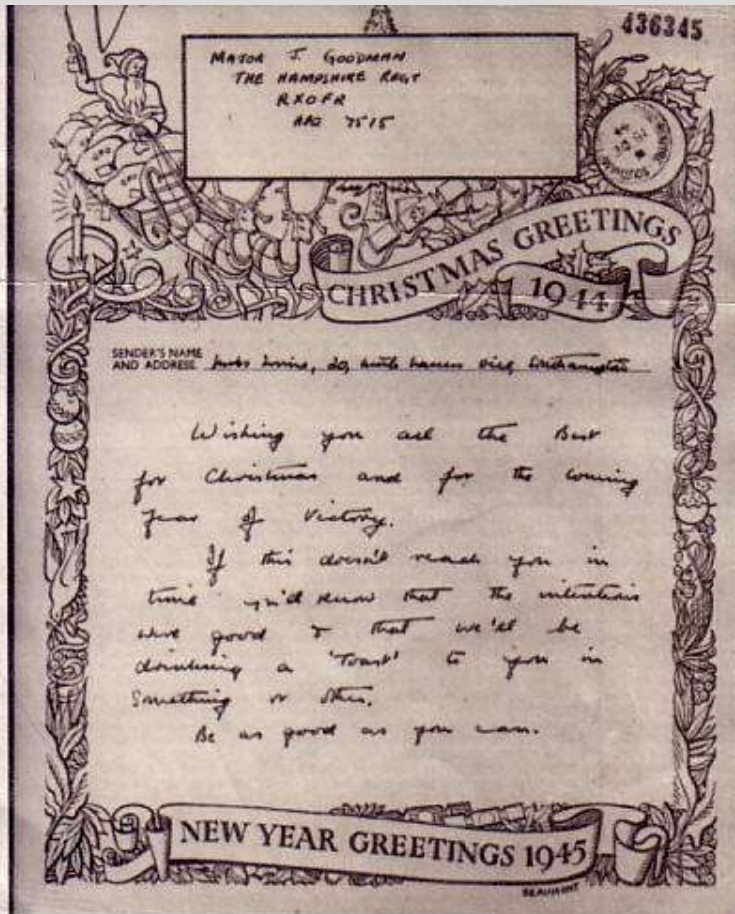 436345
MAJOR J. GOODMAN
THE HAMPSHIRE REGT
RXOFR
APO 7515
CHRISTMAS GREETINGS
1944
SENDER'S NAME
AND ADDRESS
Wishing you all the Best
for Christmas and for the coming
Year of Victory.
If this doesn't reach you in
time you'll know that the intentions
were good & that we'll be
drinking a 'Toast' to you in
Something or other.
Be as good as you can.
NEW YEAR GREETINGS 1945
BEAUMONT